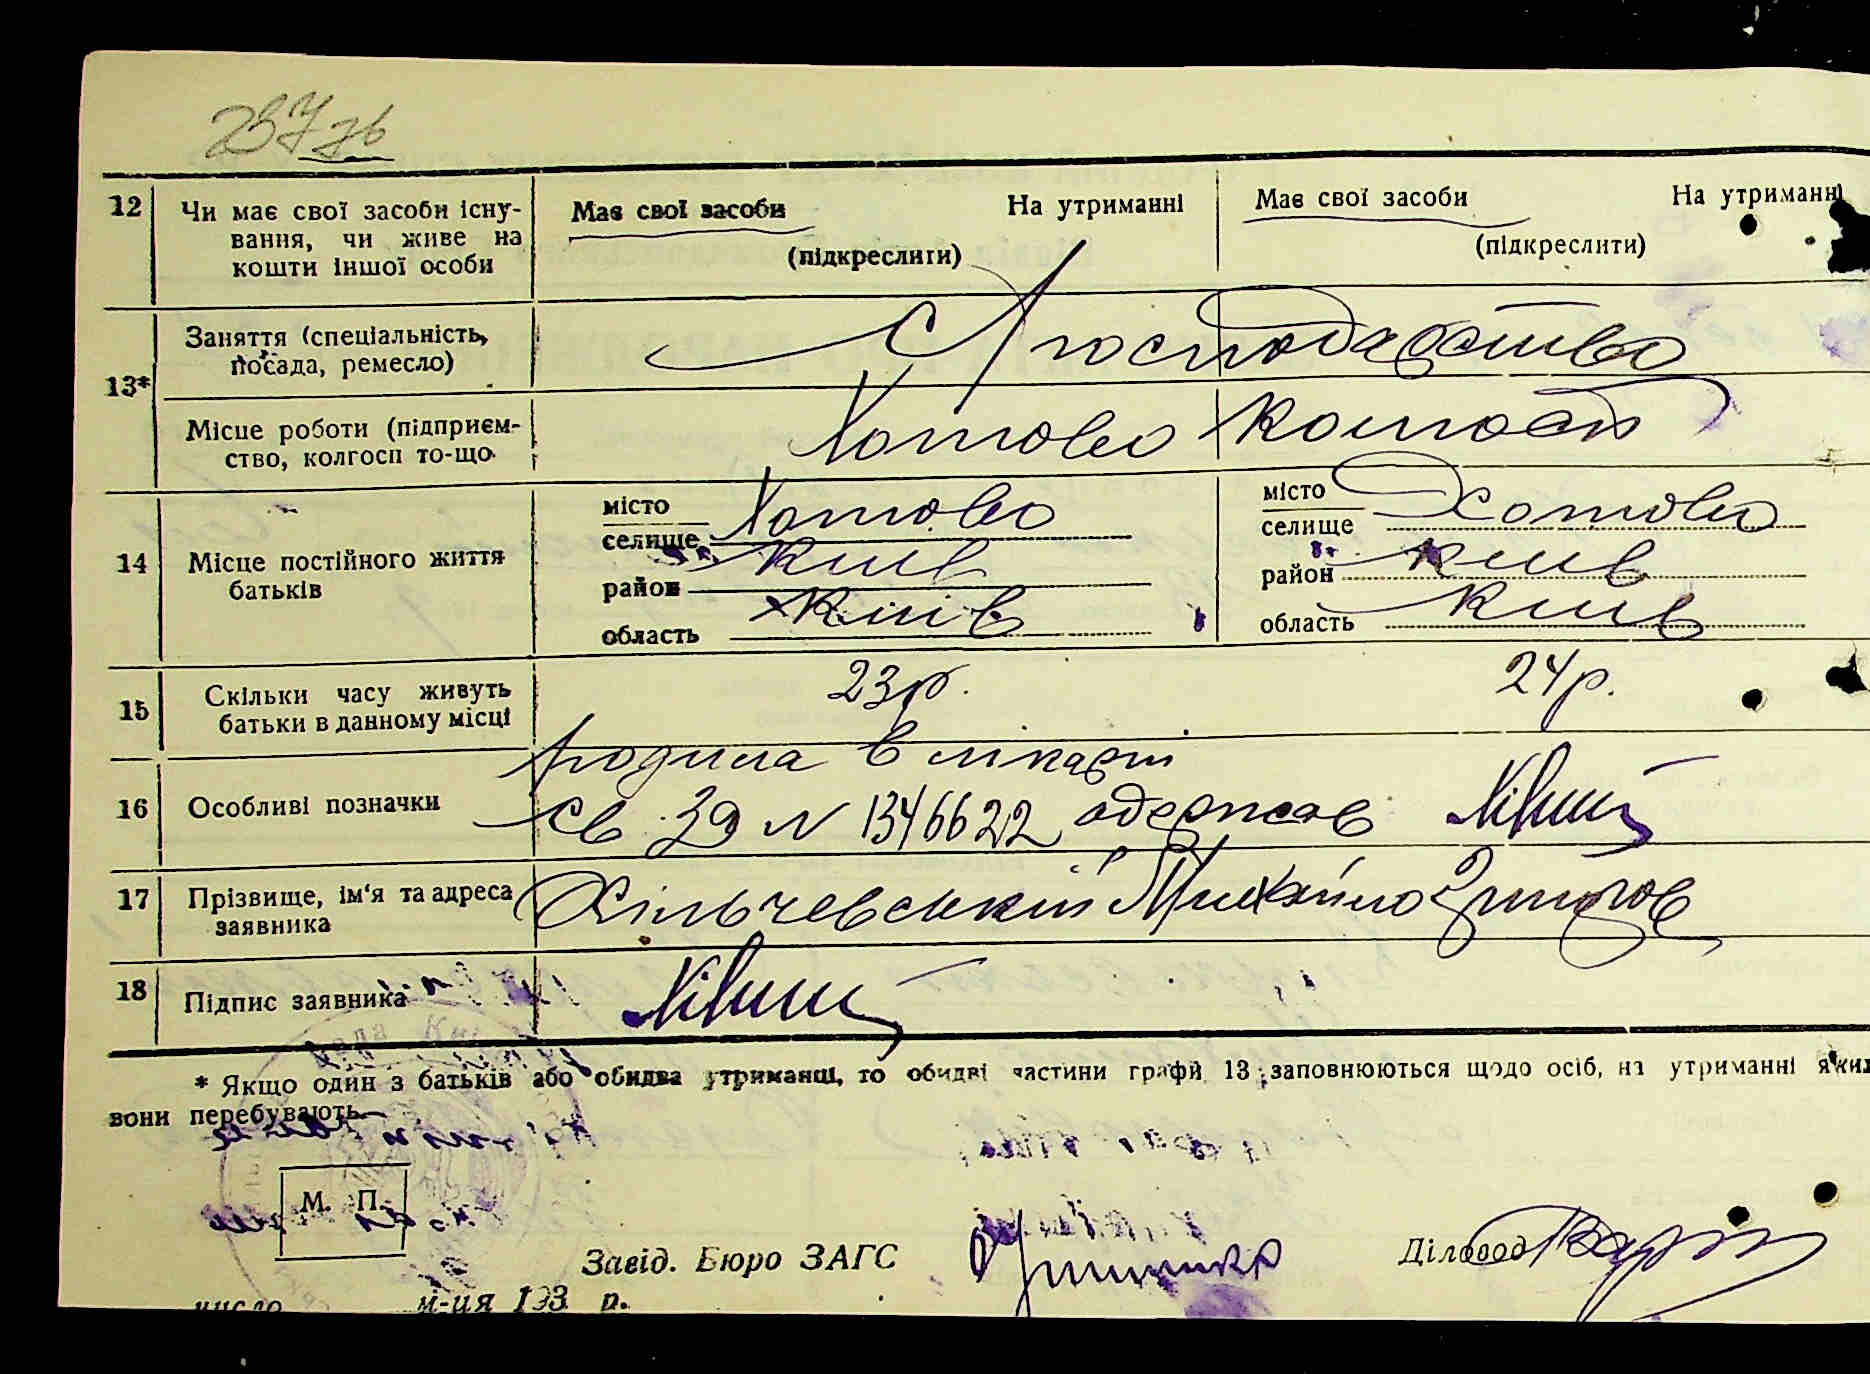 237
12 Чи має свої засоби існування, чи живе на кошти іншої особи
Має свої засоби На утриманні Має свої засоби На утриманні
(підкреслити) (підкреслити)
13* Заняття (спеціальність, посада, ремесло)
С/господарство
Місце роботи (підприємство, колгосп то-що
Хотово Колгосп
14 Місце постійного життя батьків
місто місто
селище Хотово селище Хотово
район Київ район Київ
область Київ область Київ
15 Скільки часу живуть батьки в данному місці
23 р. 24 р.
родила в лікарні
16 Особливі позначки
Св ЗЯ N 1346622 одержав
17 Прізвище, ім'я та адреса заявника
Кільчевський Михайло Григоров
18 Підпис заявника
* Якщо один з батьків або обидва утриманці, то обидві частини графи 13 заповнюються щодо осіб, на утриманні яких
вони перебувають.
М. П.
Завід. Бюро ЗАГС Діловод
число м-ця 193 р.